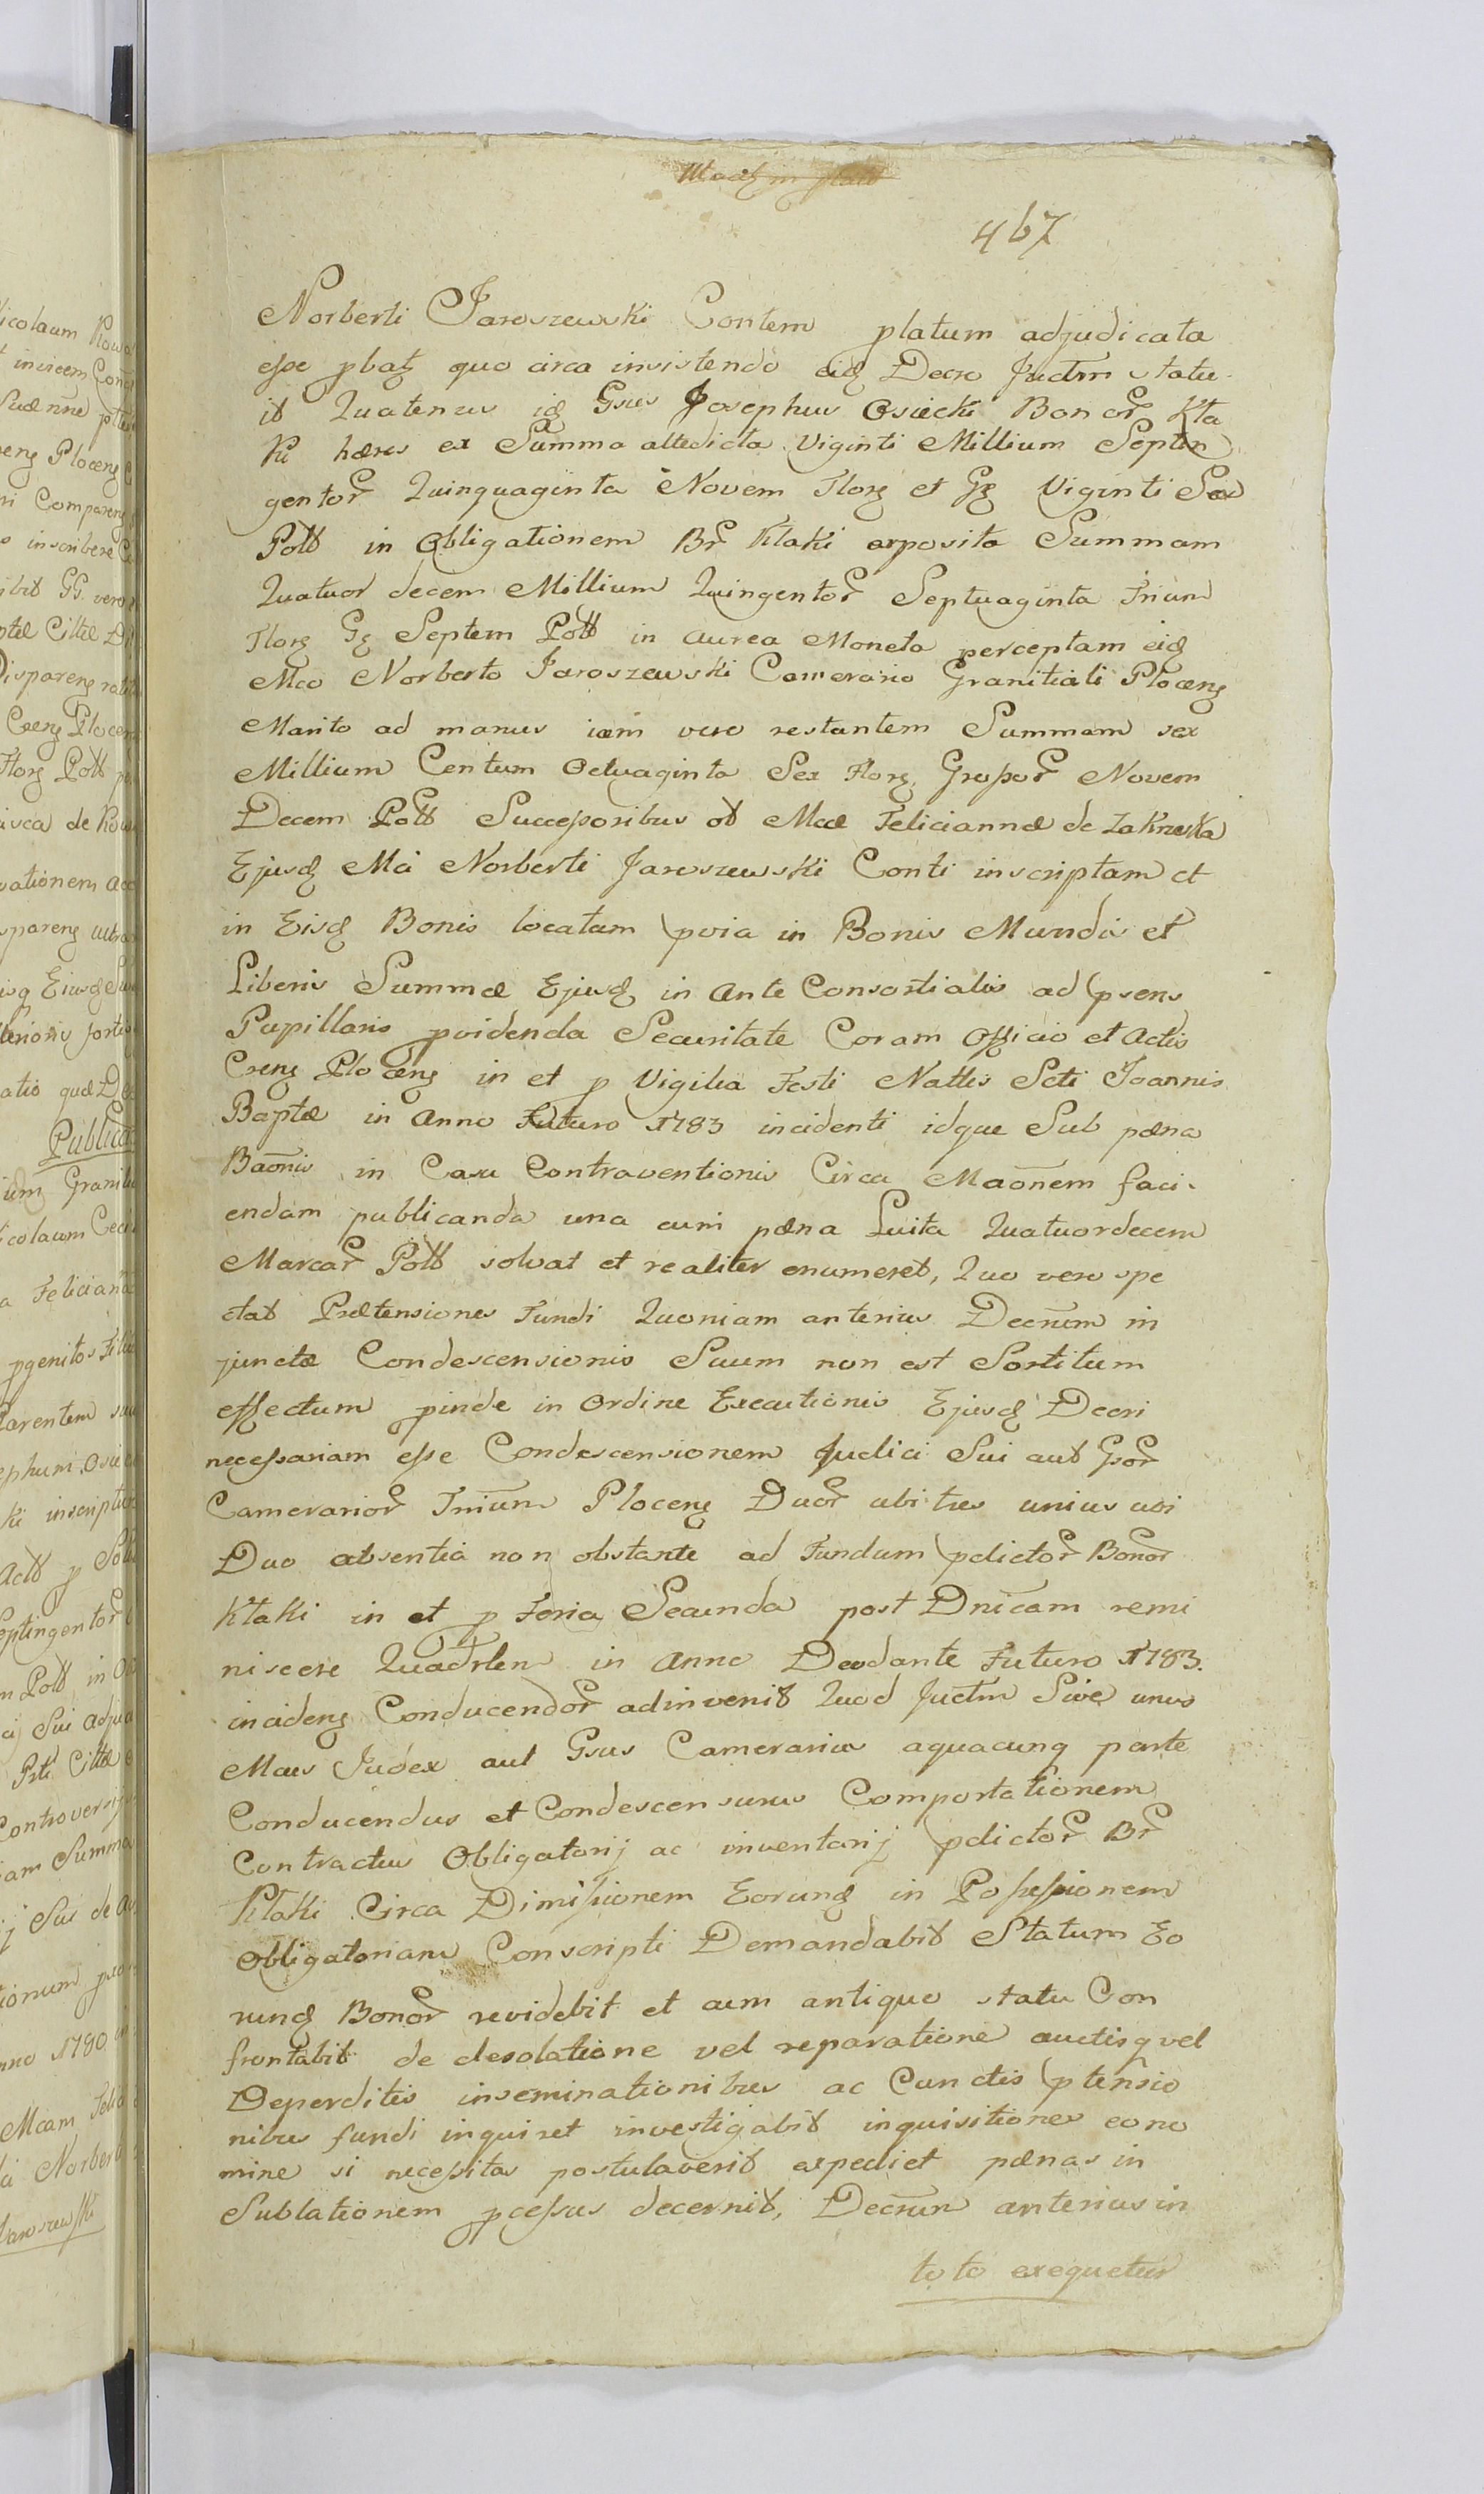 467
Norberti Jaroszewski Contem platum adjudicata
esse pbatz quo circa insistendo eidz Decro Juctm statu-
it Quatenus idz Gsus Josephus Osiecki Bonor Kta
ki hæres ex Summa altedicta Viginti Millium Septin
gentor Quinquaginta Novem Florz et Gz Viginti Sex
Poll in Obligationem Br Ktaki exposita Summam
Quatuor decem Millium Quingentor Septuaginta Trium
Florz Gz Septem Poll in aurea Moneta perceptam eidz
Mco Norberto Jaroszewski Camerario Granitiali Plocenz
Marito ad manus iam vero restantem Summam sex
Millium Centum Octuaginta Sex Florz Grossor Novem
Decem Poll Successoribus ol Mcæ Feliciannæ de Zakrzeska
Ejusdz Mci Norberti Jaroszewski Conti inscriptam et
in Eisdz Bonis locatam pvia in Bonis Mundis et
Liberis Summæ Ejusdz in ante Consortialis ad psens
Pupillaris pvidenda Securitate Coram Officio et Actis
Crenz Plocenz in et p Vigilia Festi Nattis Scti Joannis
Baptæ in Anno Futuro 1783 incidenti idque Sub pæna
Baonis in Casu Contraventionis Circa Maonem faci-
endam publicanda una cum pæna Luita Quatuordecem
Marcar Poll solvat et realiter enumeret, Quo vero spe
ctat Prætensiones Fundi Quoniam anterius Decrum in
junctæ Condescensionis Suum non est Sortitum
effectum pinde in Ordine Executionis Ejusdz Decri
necessariam esse Condescensionem Judici Sui aut Gsor
Camerarior Trium Plocenz Duor ubi tres unius ubi
Duo absentia non obstante ad Fundum pdictor Bonor
Ktaki in et p Feria Secunda post Dnicam remi
niscere Quadrlem in Anno Deodante Futuro 1783.
incidenz Conducendor adinvenit Quod Juctm Sive unus
Mcus Judex aut Gsus Camerarius aquacunq parte
Conducendus et Condescensurus Comportationem
Contractus Obligatorij ac inventarij pdictor Br
Ktaki Circa Dimissionem Eorundz in Possessionem
Obligatoriam Conscripti Demandabit Statum Eo
rundz Bonor revidebit et cum antiquo statu Con
frontabit de desolatione vel reparatione auctisq vel
Deperditis inseminationibus ac Cunctis ptensio
nibus fundi inquiret investigabit inquisitiones eono
mine si necessitas postulaverit expediet pænas in
Sublationem pcessus decernit, Decrum anterius in
toto exequetur